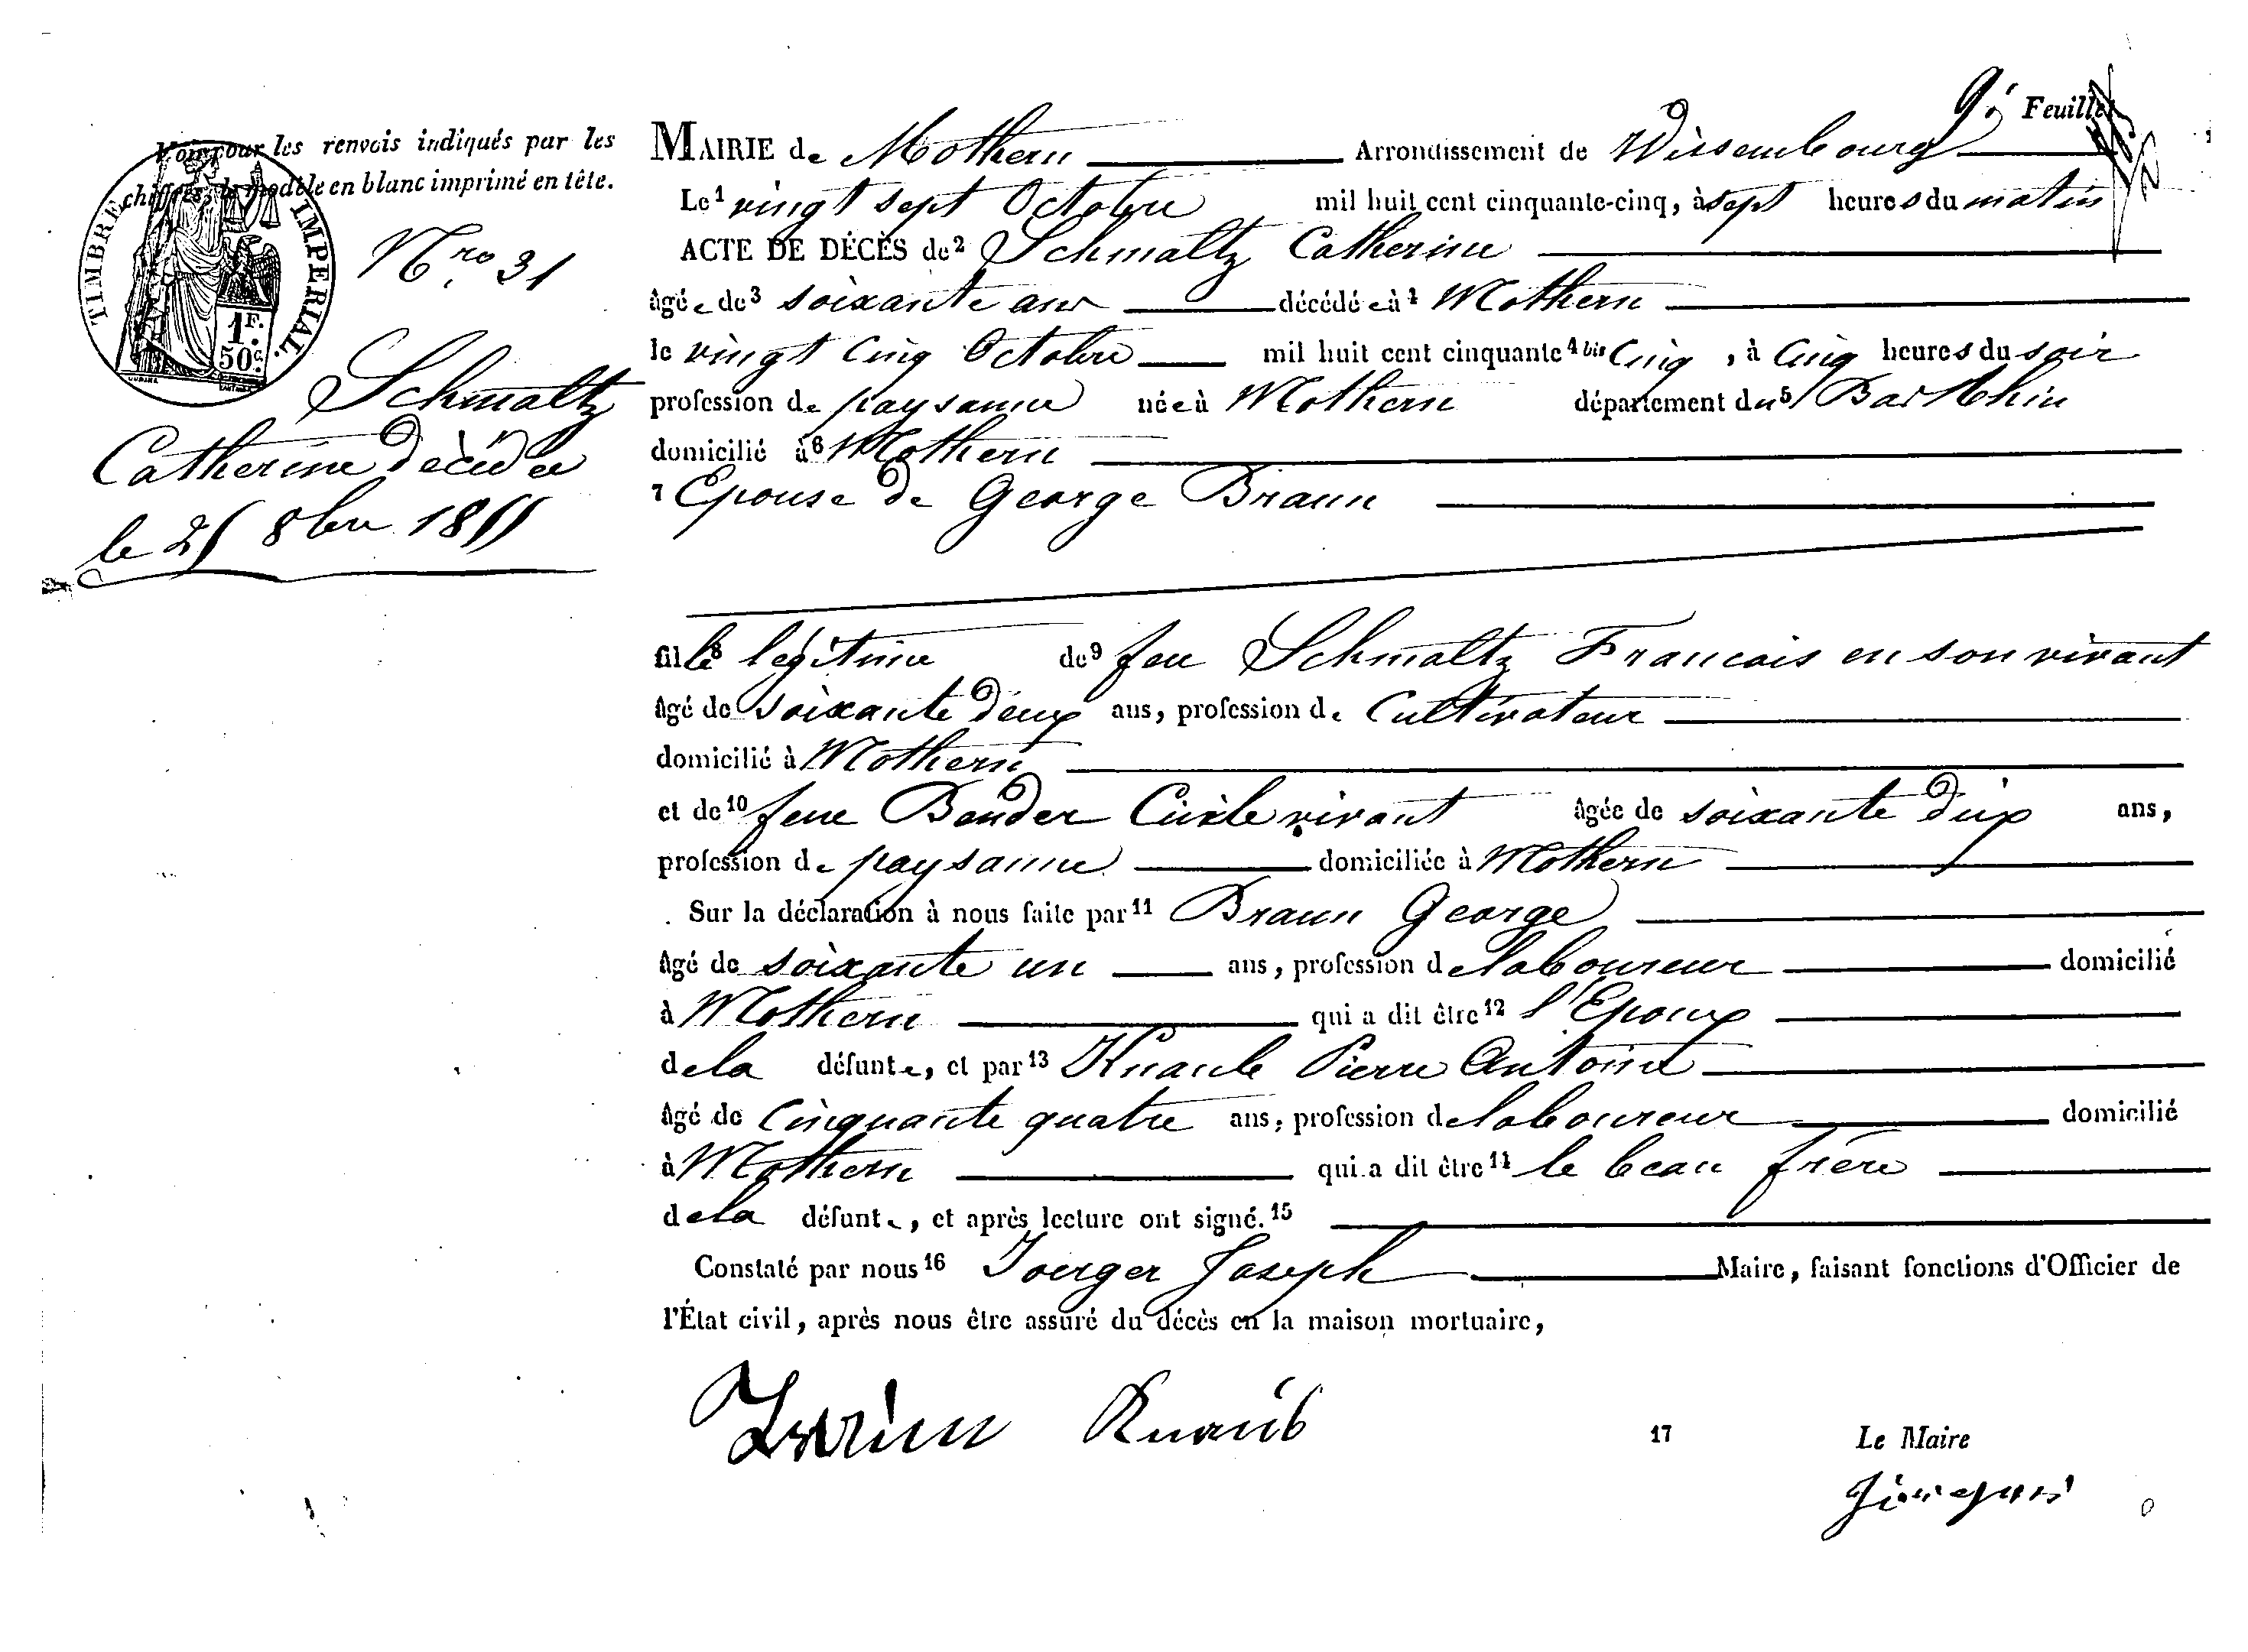 9.e Feuillet
Voir pour les renvois indiqués par les
chiffres, le modèle en blanc imprimé en tête.
TIMBRE IMPERIAL.
1 F.
50 c.
Nro. 31
Schmaltz
Catherine décédée
le 25 8bre 1855
MAIRIE de Mothern Arrondissement de Wissembourg
Le 1 vingt sept Octobre mil huit cent cinquante-cinq, à sept heures du matin
ACTE DE DÉCÈS de 2 Schmaltz Catherine
âgée de 3 soixante ans décédée à 4 Mothern
le vingt cinq Octobre mil huit cent cinquante 4 bis cinq, à cinq heures du soir
profession de paysanne née à Mothern département du 5 Bas Rhin
domicilié à 6 Mothern
7 Epouse de George Braun
fille 8 légitime de 9 feu Schmaltz Francais en son vivant
âgé de soixante deux ans, profession de Cultivateur
domicilié à Mothern
et de 10 feue Bender vivant âgée de soixante dix ans,
profession de paysanne domiciliée à Mothern
Sur la déclaration à nous faite par 11 Braun George
âgé de soixante un ans, profession de laboureur domicilié
à Mothern qui a dit être 12 l'Epoux
de la défunte, et par 13 Knaub Pierre Antoine
âgé de cinquante quatre ans, profession de laboureur domicilié
à Mothern qui a dit être 14 le beau frère
de la défunte, et après lecture ont signé. 15
Constaté par nous 16 Joerger Joseph Maire, faisant fonctions d'Officier de
l'État civil, après nous être assuré du décès en la maison mortuaire,
Knaub
17 Le Maire